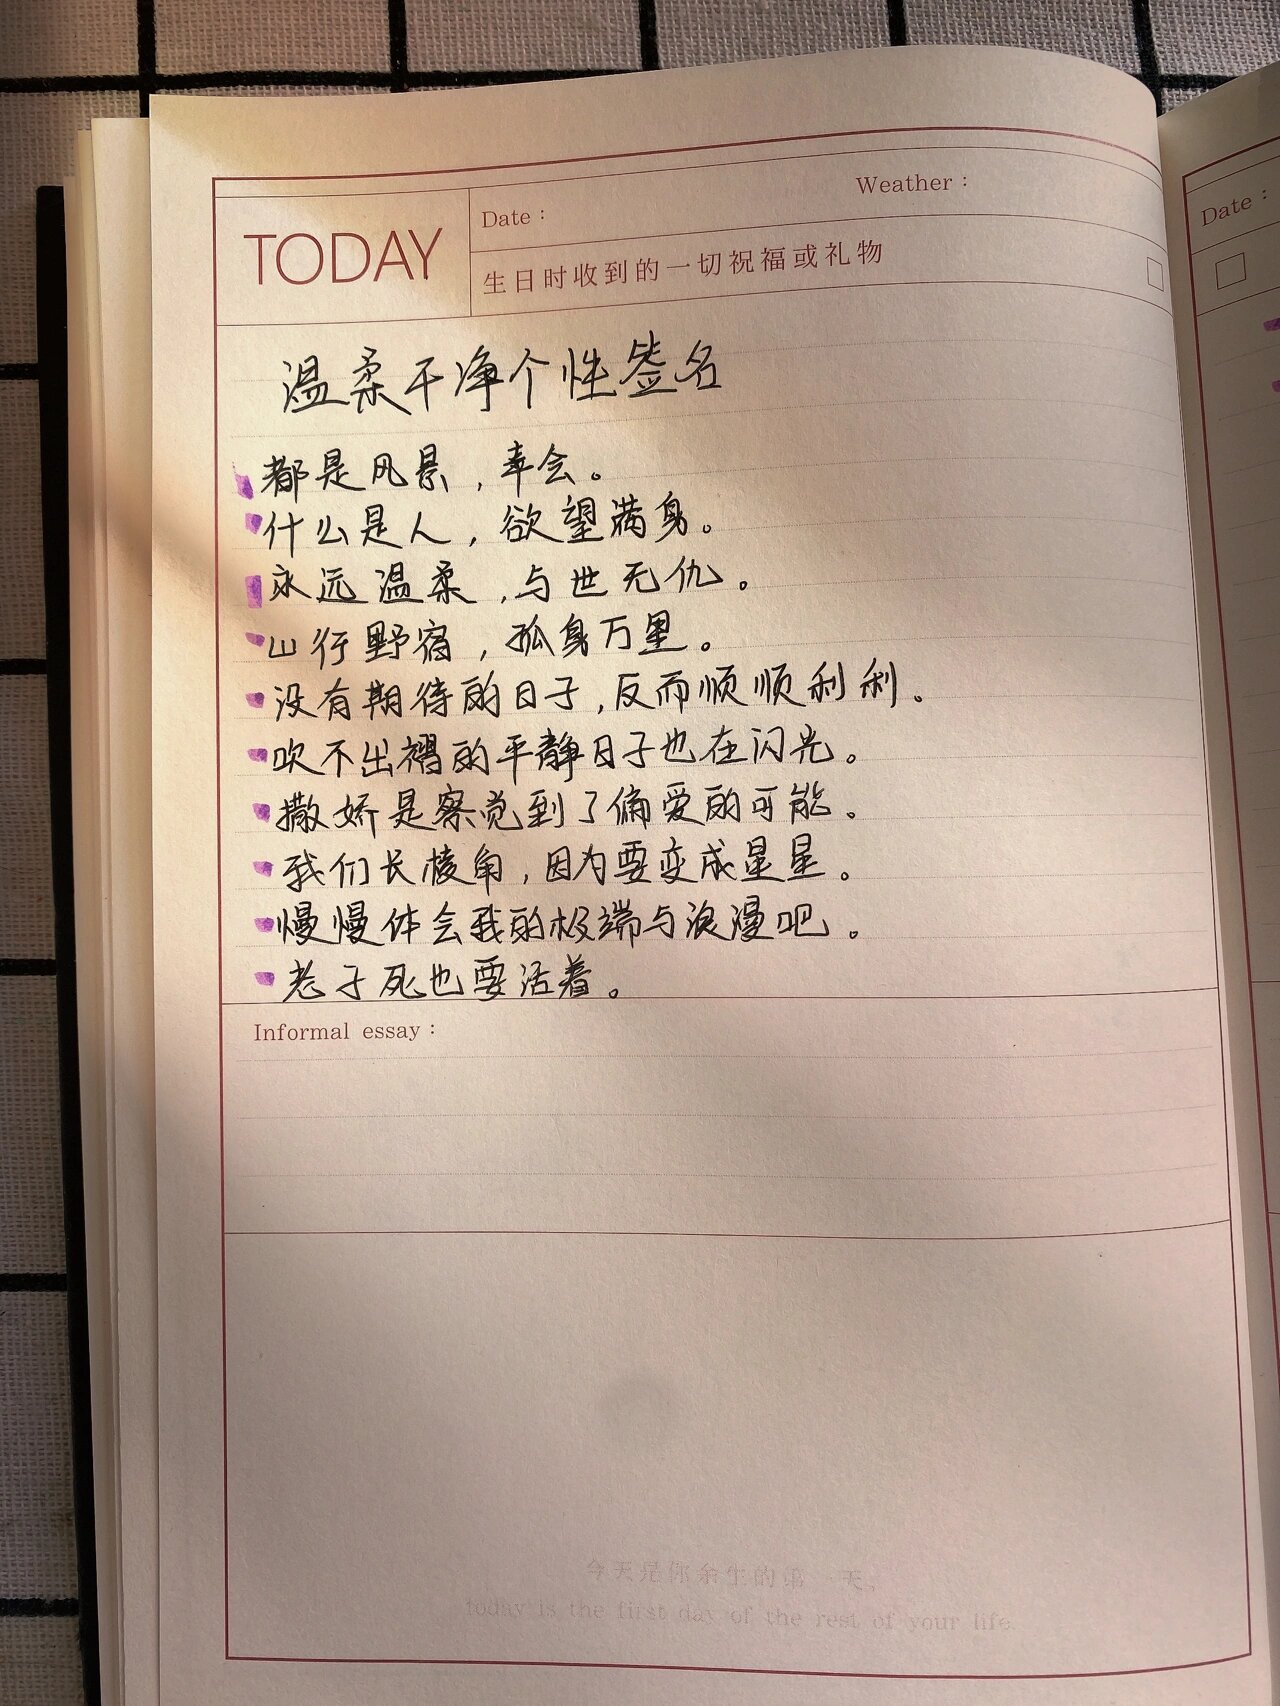 Weather：
Date：
Date：
TODAY
生日时收到的一切祝福或礼物
温柔干净个性签名
都是风景，幸会。
什么是人，欲望满身。
永远温柔，与世无仇。
山行野宿，孤身万里。
没有期待的日子，反而顺顺利利。
吹不出褶的平静日子也在闪光。
撒娇是察觉到了偏爱的可能。
我们长棱角，因为要变成星星。
慢慢体会我的极端与浪漫吧。
老子死也要活着。
Informal essay：
今天是你余生的第一天，
today is the first day of the rest of your life